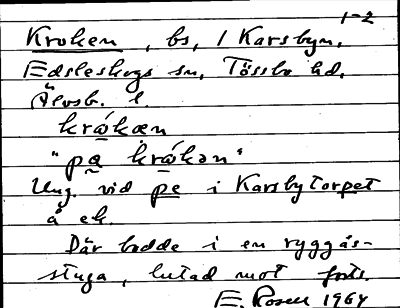 1-2
Kroken, bs, / Karsbyn,
Edsleskogs sn, Tössbo hd,
Älvsb. l.
krókæn
"pa krókən"
Ung. vid pe i Karsbytorpet
å ek.
Där bodde i en ryggås-
stuga, lutad mot forts.
E. Rosen 1964